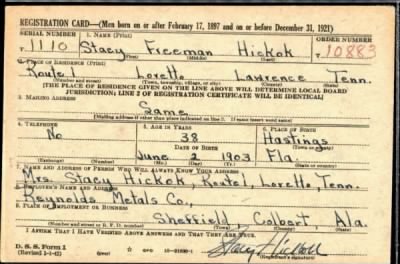 REGISTRATION CARD—(Men born on or after February 17, 1897 and on or before December 31, 1921)
SERIAL NUMBER 1. NAME (Print) ORDER NUMBER
T 1110 Stacy Freeman Hickok T 10883
(First) (Middle) (Last)
2. PLACE OF RESIDENCE (Print)
Route 1 Loretto Lawrence Tenn.
(Number and street) (Town, township, village, or city) (County) (State)
(THE PLACE OF RESIDENCE GIVEN ON THE LINE ABOVE WILL DETERMINE LOCAL BOARD
JURISDICTION; LINE 2 OF REGISTRATION CERTIFICATE WILL BE IDENTICAL)
3. MAILING ADDRESS
Same
(Mailing address if other than place indicated on line 2. If same, insert word same)
4. TELEPHONE 5. AGE IN YEARS 6. PLACE OF BIRTH
No 38 Hastings
DATE OF BIRTH (Town or county)
June 2 1903 Fla.
(Exchange) (Number) (Mo.) (Day) (Yr.) (State or country)
7. NAME AND ADDRESS OF PERSON WHO WILL ALWAYS KNOW YOUR ADDRESS
Mrs Stacy Hickok, Route 1, Loretto, Tenn.
8. EMPLOYER'S NAME AND ADDRESS
Reynolds Metals Co.,
9. PLACE OF EMPLOYMENT OR BUSINESS
Sheffield Colbert, Ala.
(Number and street or R. F. D. number) (Town) (County) (State)
I AFFIRM THAT I HAVE VERIFIED ABOVE ANSWERS AND THAT THEY ARE TRUE.
D. S. S. Form 1
(Revised 1-1-42) GPO Stacy Hickok
(Registrant's signature)